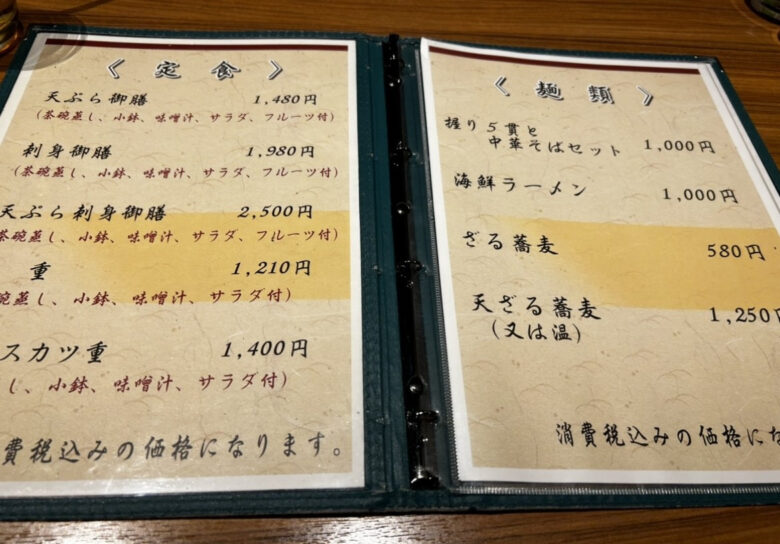 《定食》
天ぷら御膳 1,480円
(茶碗蒸し、小鉢、味噌汁、サラダ、フルーツ付)
刺身御膳 1,980円
(茶碗蒸し、小鉢、味噌汁、サラダ、フルーツ付)
天ぷら刺身御膳 2,500円
茶碗蒸し、小鉢、味噌汁、サラダ、フルーツ付)
重 1,210円
碗蒸し、小鉢、味噌汁、サラダ付)
スカツ重 1,400円
し、小鉢、味噌汁、サラダ付)
費税込みの価格になります。
《麺類》
握り5貫と
中華そばセット 1,000円
海鮮ラーメン 1,000円
ざる蕎麦 580円
天ざる蕎麦 1,250円
(又は温)
消費税込みの価格にな